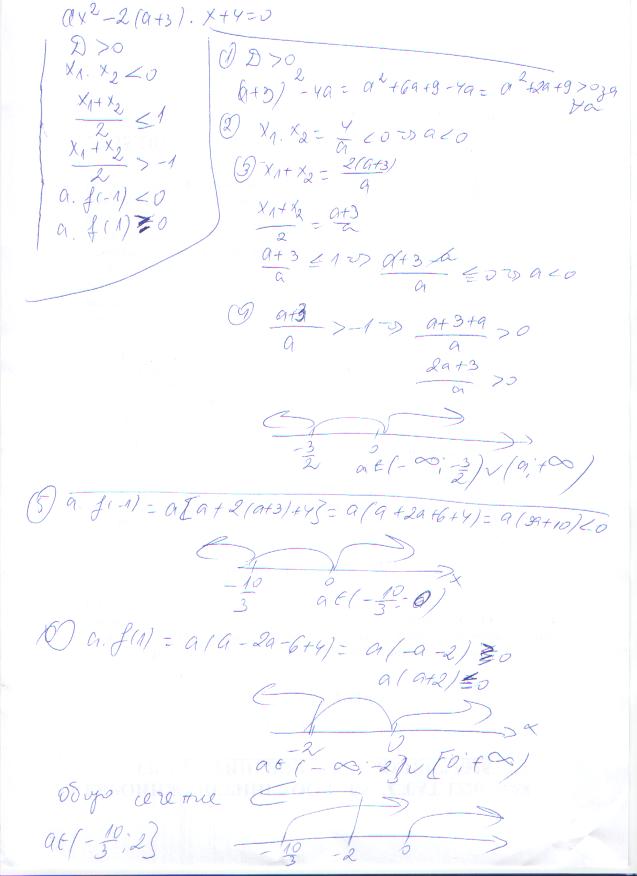 ax² - 2(a+3). x+4=0
D > 0
x₁. x₂ < 0
(x₁+x₂)/2 ≤ 1
(x₁+x₂)/2 > -1
a. f(-1) < 0
a. f(1) ≥ 0
① D > 0
(a+3)² - 4a = a² + 6a + 9 - 4a = a² + 2a + 9 > 0 за ∀a
② x₁. x₂ = 4/a < 0 => a < 0
③ x₁+x₂ = 2(a+3)/a
(x₁+x₂)/2 = (a+3)/a
(a+3)/a ≤ 1 => (a+3-a)/a ≤ 0 => a < 0
④ (a+3)/a > -1 => (a+3+a)/a > 0
(2a+3)/a > 0
-3/2 0
a∈(-∞; -3/2) ∪ (0; +∞)
⑤ a. f(-1) = a[a + 2(a+3) + 4] = a(a + 2a + 6 + 4) = a(3a+10) < 0
-10/3 0 x
a∈(-10/3; 0)
⑥ a. f(1) = a(a - 2a - 6 + 4) = a(-a - 2) ≥ 0
a(a+2) ≤ 0
-2 0 x
a∈(-∞; -2] ∪ [0; +∞)
общо сечение
a∈(-10/3; 2}
-10/3 -2 0